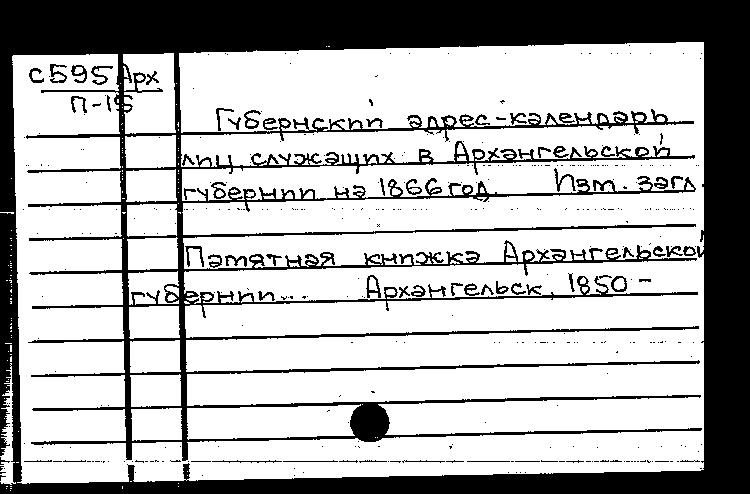 С595 Арх
П-15
Губернский адрес-календарь
лиц, служащих в Архангельской
губернии на 1866 год. Изм. загл.
Памятная книжка Архангельской
губернии... Архангельск, 1850 -